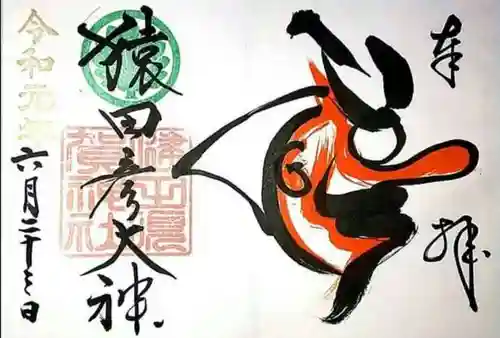 奉拝
猿田彦大神
令和元年
六月二十三日